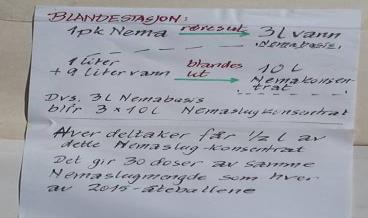 BLANDESTASJON:
1pk Nema røres ut → 3l vann
Nemabasis.
1 liter blandes 10 l
+ 9 liter vann ut → Nemakonsen-
trat
Dvs. 3l Nemabasis
blir 3 x 10l Nemaslugkonsentrat
Hver deltaker får 1/2 l av
dette Nemaslug-konsentrat
Det gir 30 doser av samme
Nemaslugmengde som hver
av 2015-åteballene